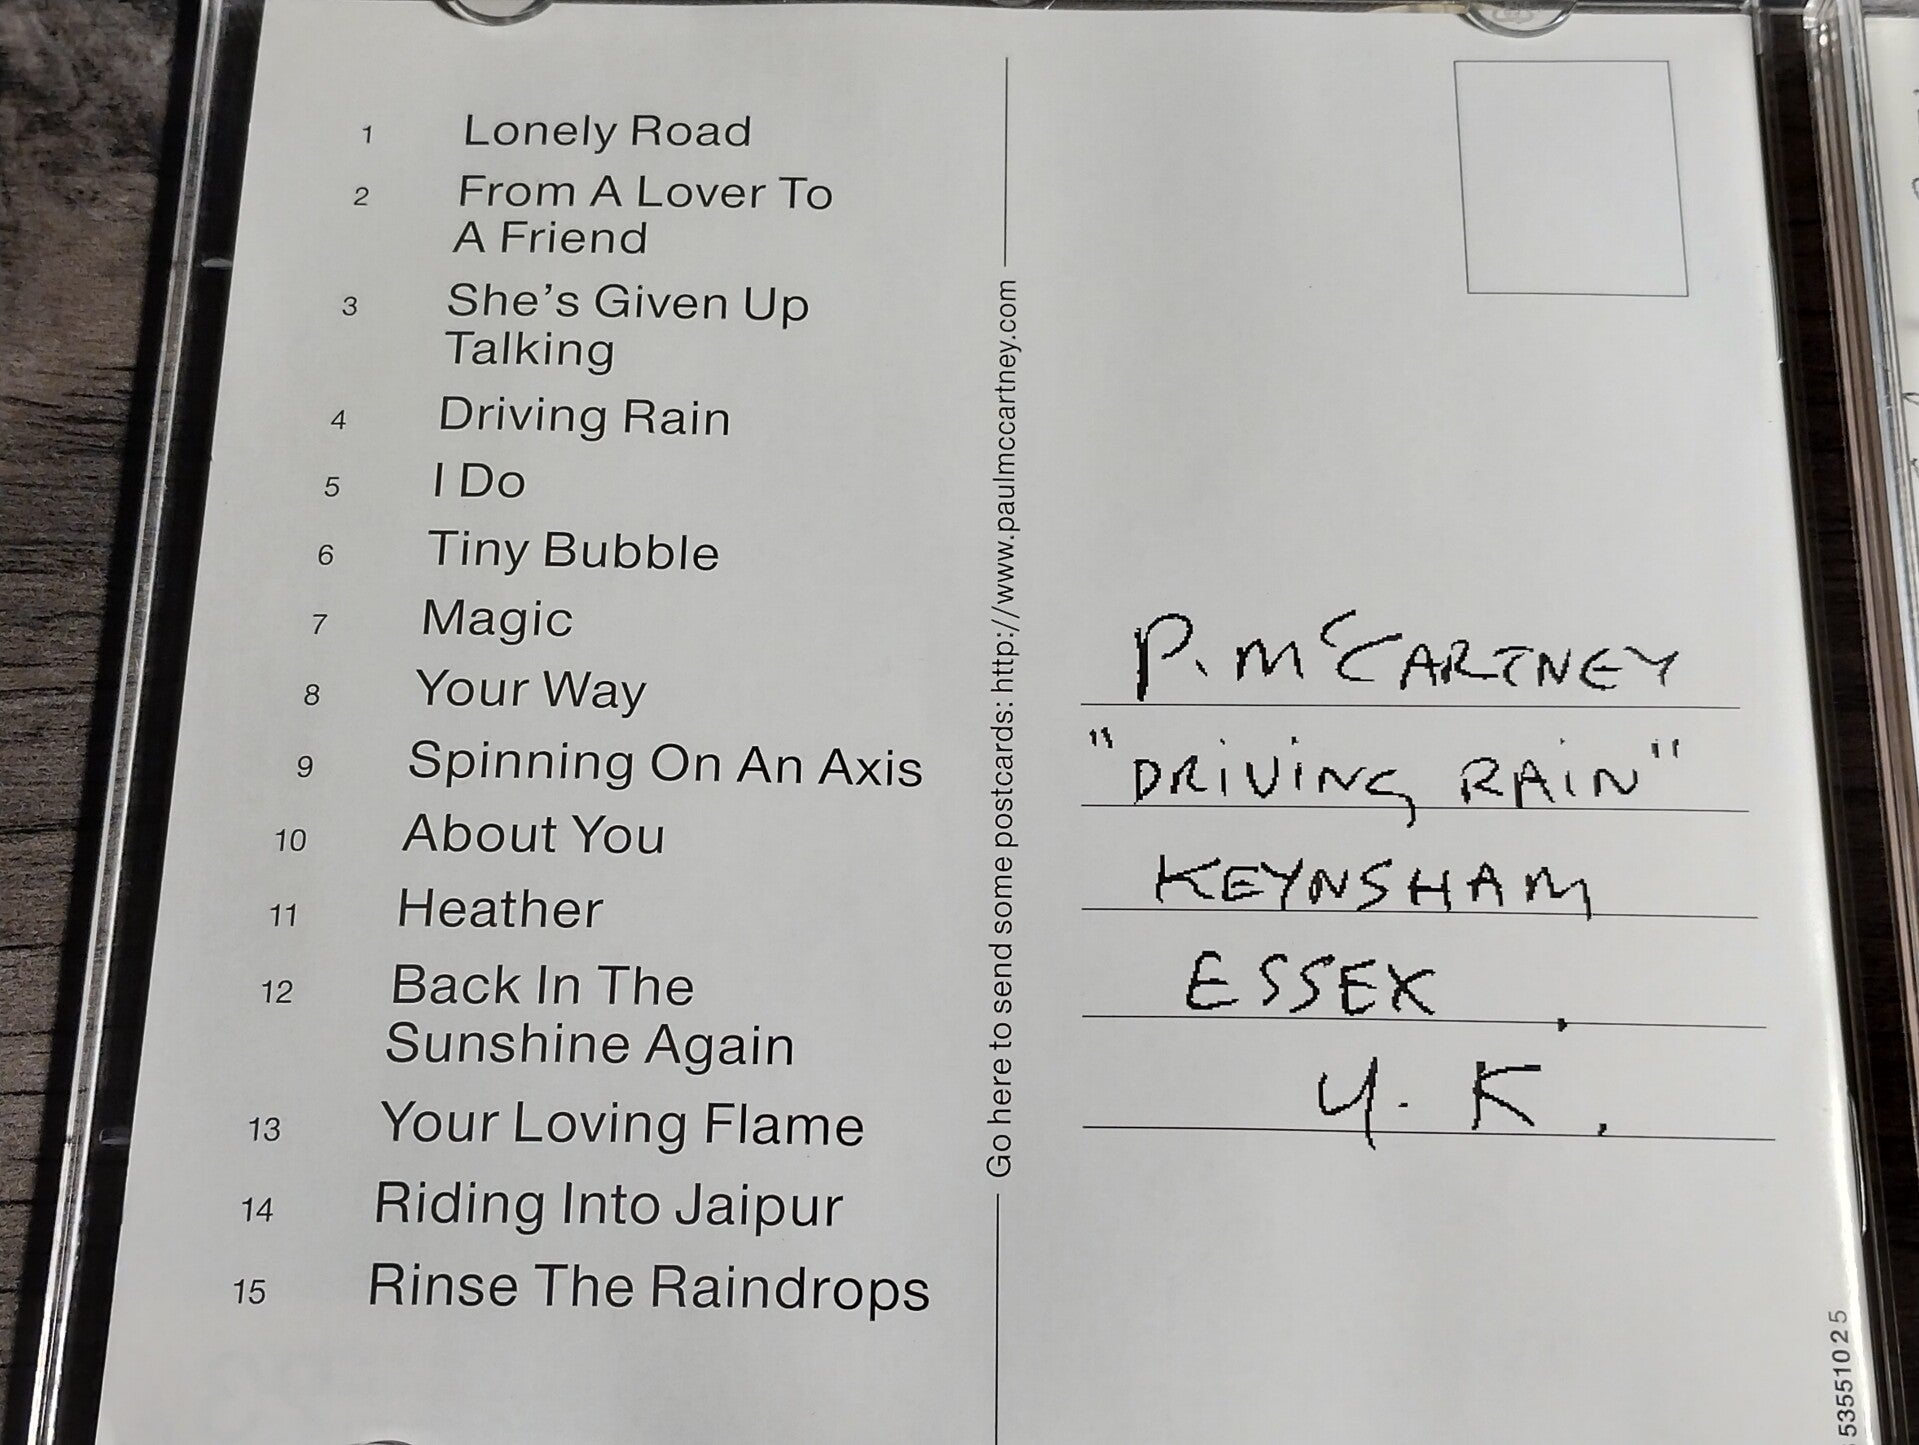 1 Lonely Road
2 From A Lover To
A Friend
3 She's Given Up
Talking
4 Driving Rain
5 I Do
6 Tiny Bubble
7 Magic
8 Your Way
9 Spinning On An Axis
10 About You
11 Heather
12 Back In The
Sunshine Again
13 Your Loving Flame
14 Riding Into Jaipur
15 Rinse The Raindrops
Go here to send some postcards: http://www.paulmccartney.com
P. McCARTNEY
"DRIVING RAIN"
KEYNSHAM
ESSEX.
U.K.
5355102 5